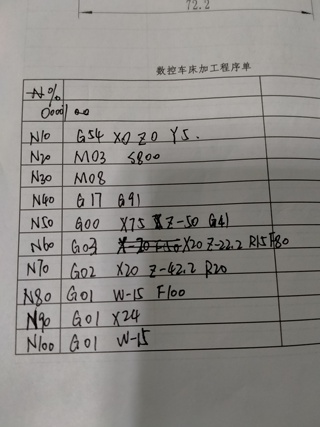 72.2
数控车床加工程序单
N%
O0001
N10 G54 X0 Z0 Y5.
N20 M03 S800
N30 M08
N40 G17 G91
N50 G00 X75 Z-50 G41
N60 G03 X20 Z-22.2 R15 F80
N70 G02 X20 Z-42.2 R20
N80 G01 W-15 F100
N90 G01 X24
N100 G01 W-15